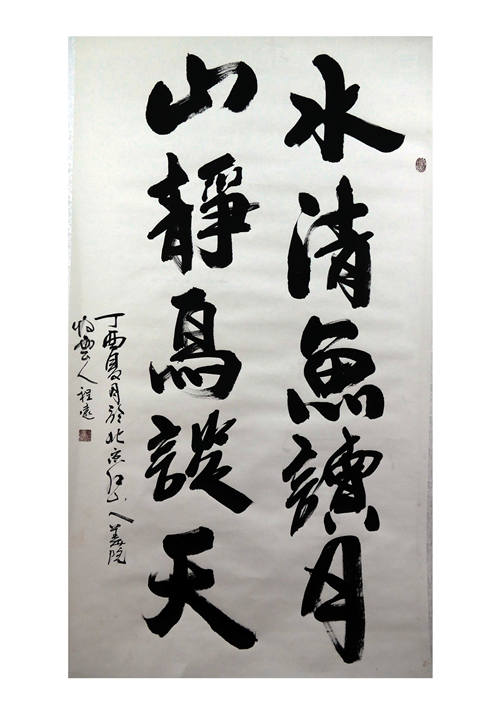 水清魚讀月
山靜鳥談天
丁酉夏月於北京紅人書院
人程遠